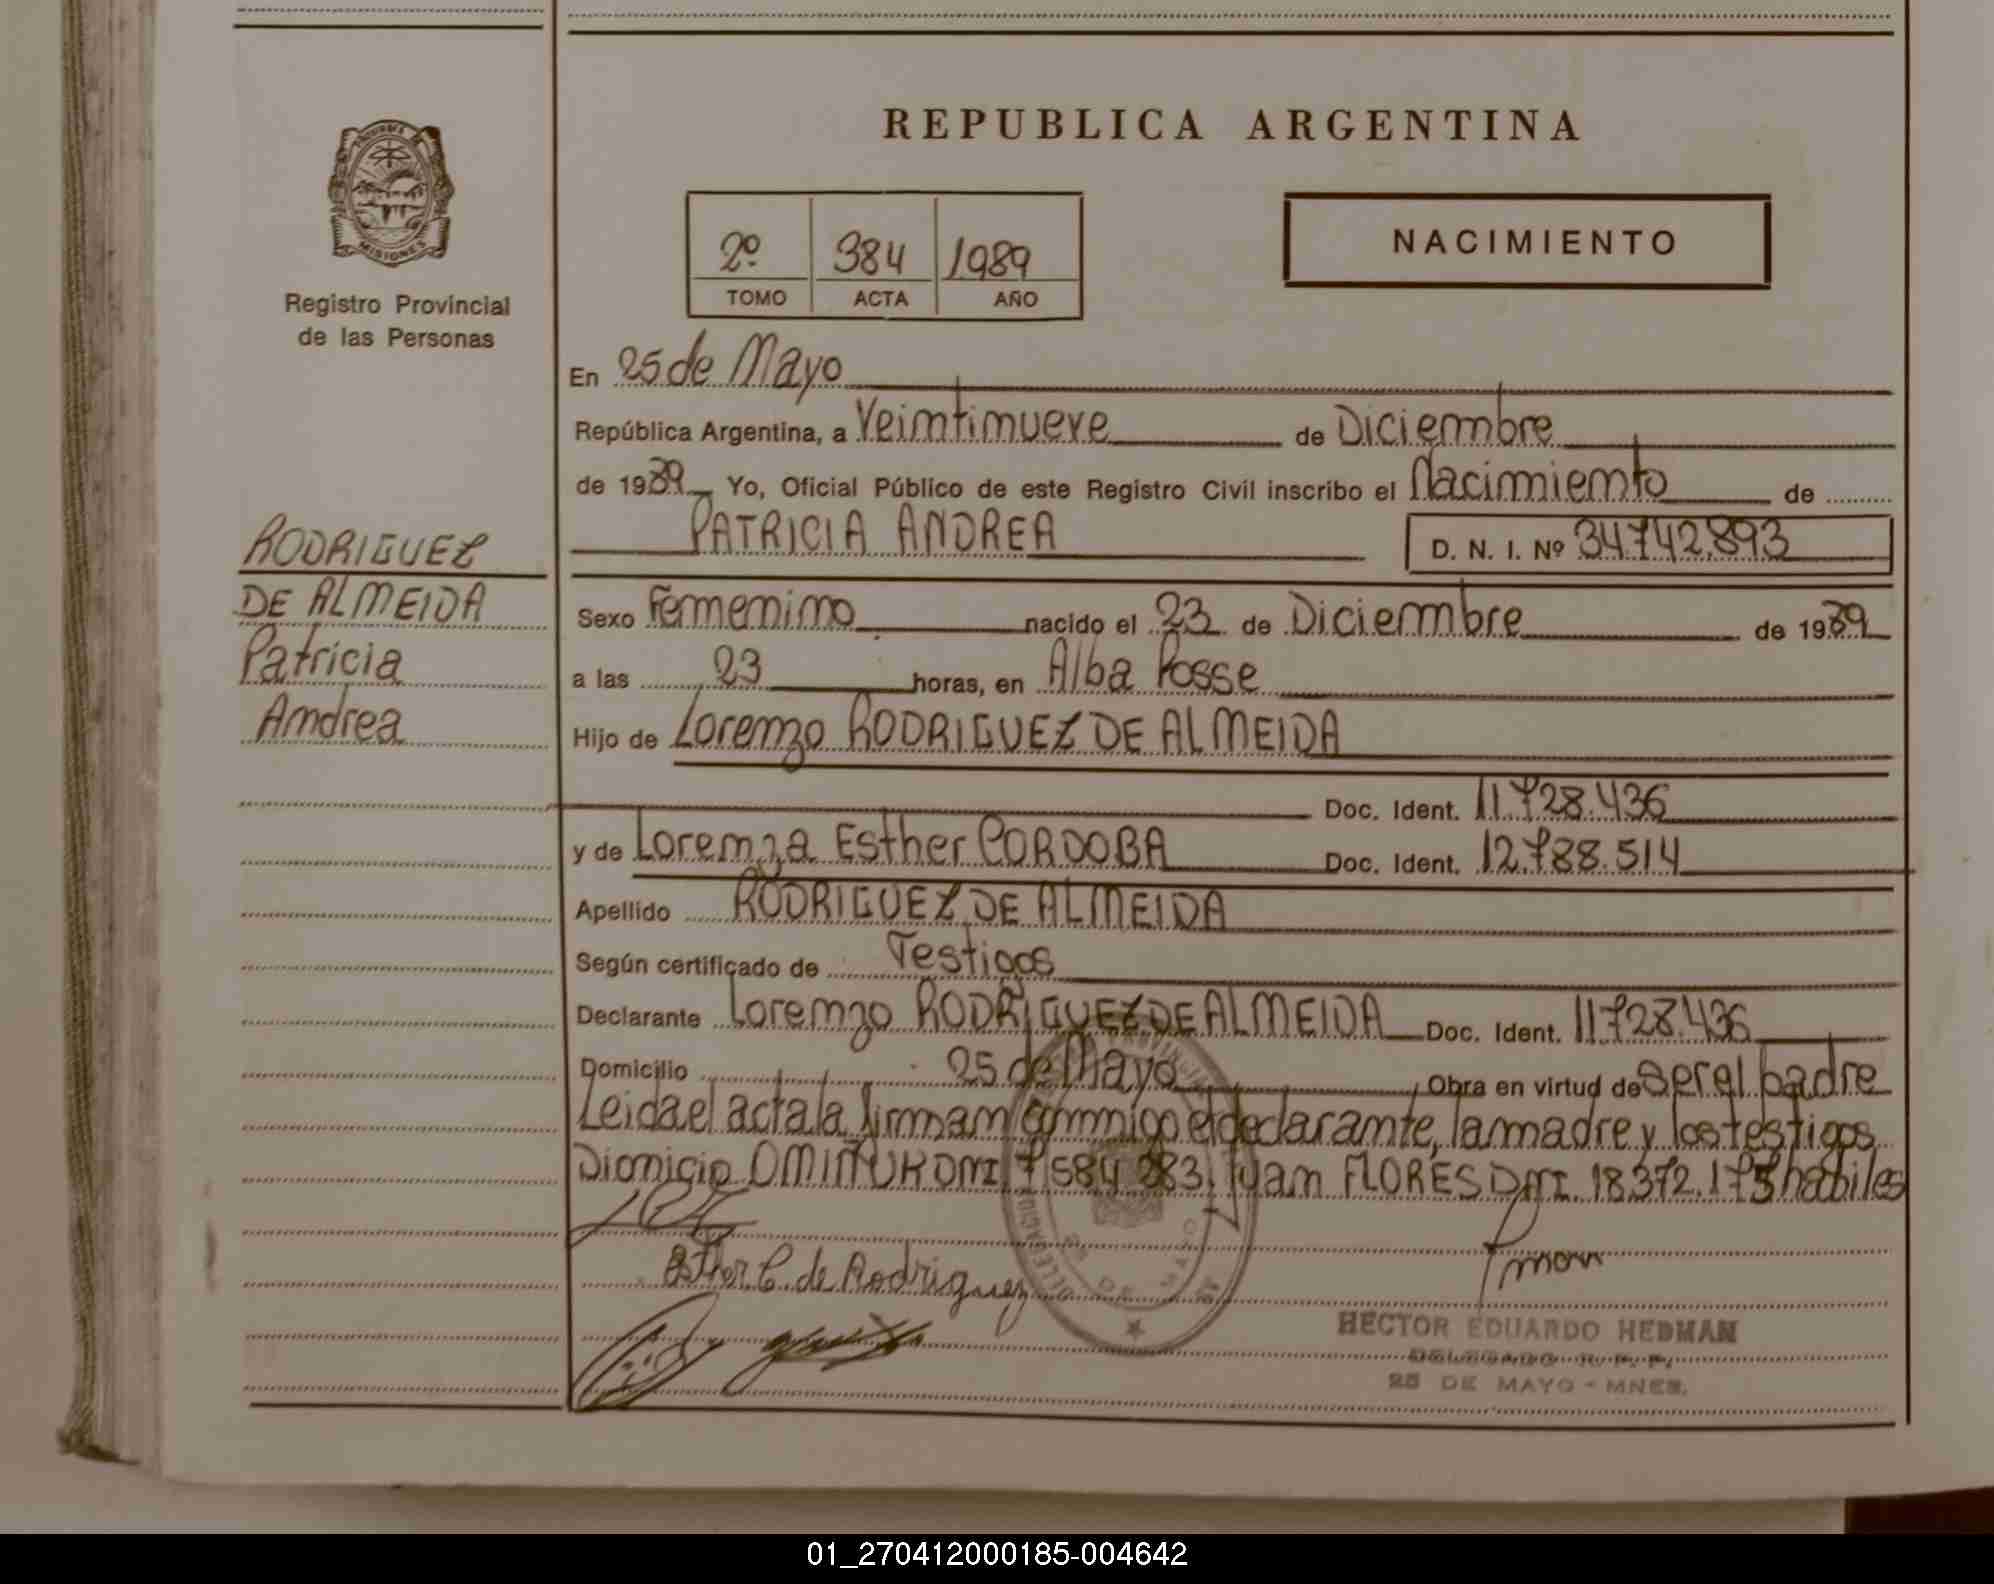 REPUBLICA ARGENTINA
MISIONES
Registro Provincial
de las Personas
2º 384 1989
TOMO ACTA AÑO
NACIMIENTO
En 25 de Mayo
República Argentina, a Veintinueve de Diciembre
de 1989 Yo, Oficial Público de este Registro Civil inscribo el Nacimiento de
PATRICIA ANDREA D. N. I. Nº 34.742.893
RODRIGUEZ
DE ALMEIDA
Patricia
Andrea
Sexo Femenino nacido el 23 de Diciembre de 1989
a las 23 horas, en Alba Posse
Hijo de Lorenzo RODRIGUEZ DE ALMEIDA
Doc. Ident. 11.728.436
y de Lorenza Esther CORDOBA Doc. Ident. 12.788.514
Apellido RODRIGUEZ DE ALMEIDA
Según certificado de Testigos
Declarante Lorenzo RODRIGUEZ DE ALMEIDA Doc. Ident. 11728.436
Domicilio 25 de Mayo Obra en virtud de ser el padre
Leida el acta la firman conmigo el declarante, la madre y los testigos
Dionicio DNI 7584283. Juan FLORES DNI. 18.372.175 habiles
Esther C. de Rodriguez
HECTOR EDUARDO HEDMAN
DELEGADO R. P. P.
25 DE MAYO - MNES.
01_270412000185-004642